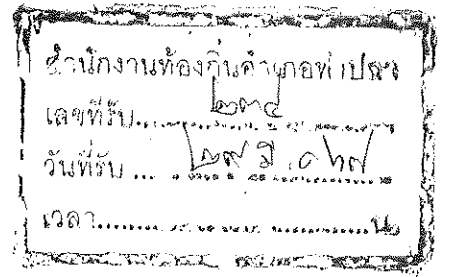 สำนักงานท้องถิ่นอำเภอท่าปลา
เลขที่รับ ๒๓๔
วันที่รับ ๒๙ มี.ค ๖๗
เวลา น.